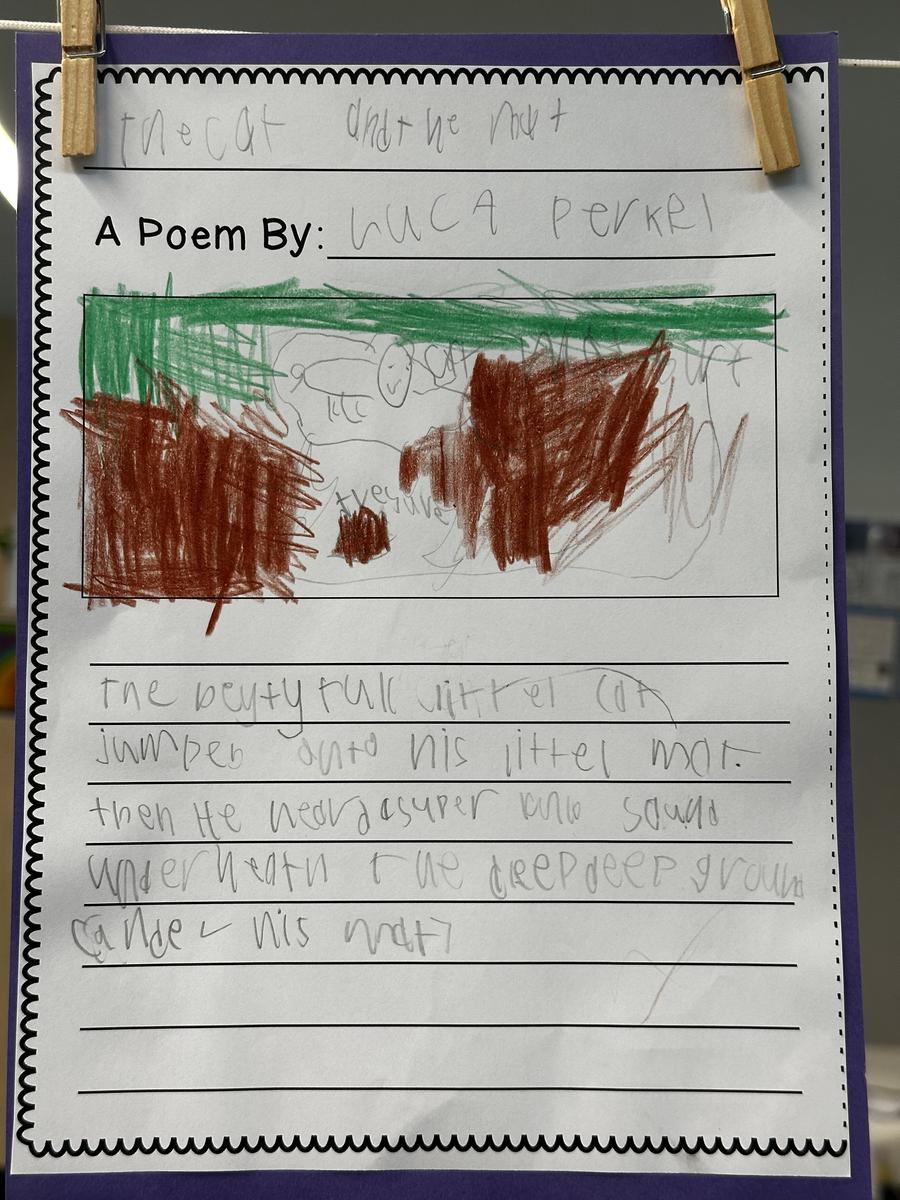 the cat and the mat
A Poem By: LUCA Perkel
cat
tresure
the beytyfull littel cat
jumped onto his littel mat.
then He heard a super sound
underneath the deep deep ground
under his mat